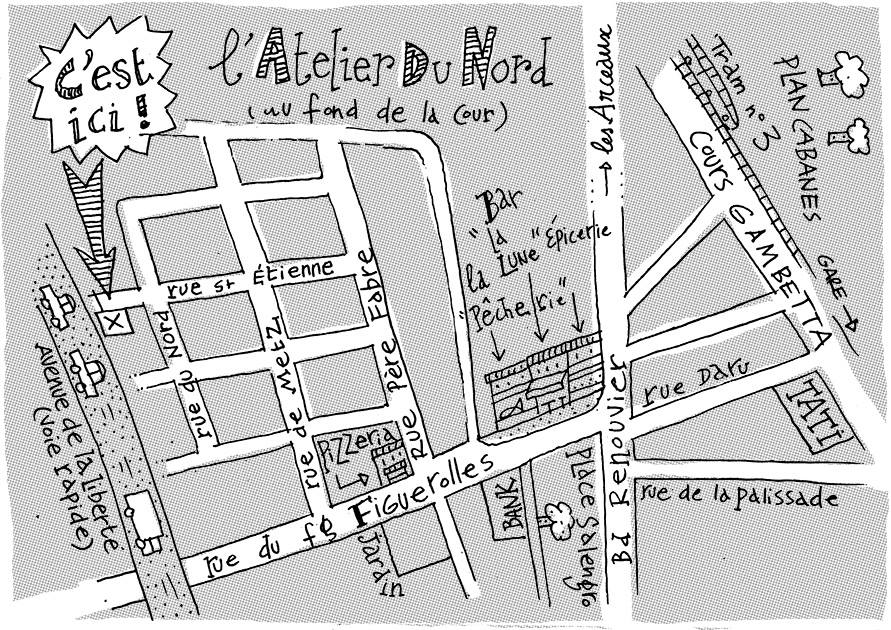 C'est
ici !
l'Atelier Du Nord
(au fond de la cour)
les Arceaux
Tram n° 3
PLAN CABANES
Cours GAMBETTA
GARE
Bar
"la
LUNE"
Épicerie
la
"Pêcherie"
rue st Étienne
X
rue du Nord
rue de Metz
Rue Père Fabre
Avenue de la liberté
(Voie rapide)
Pizzeria
rue du fg Figuerolles
Jardin
BANK
Place Salengro
Bd Renouvier
rue Daru
TATI
rue de la palissade